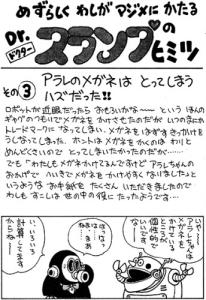 めずらしく わしが マジメに かたる
Dr.
ドクター
スランプの
ヒミツ
その3
アラレのメガネは とってしまう
ハズだった!!
ロボットが近眼だったら おもろいかな〜〜 という ほんの
ギャグの つもりで メガネを かけさせたのだが いつのまにか
トレードマークに なってしまい、メガネを はずす きっかけを
うしなってしまった。ホントは メガネを かくのは わりと
めんどくさいので とってしまいたかったのだが……
でも「わたしも メガネかけてるんですけど アラレちゃんの
おかげで へいきで メガネを かけやすくなりました」と
いうような お手紙を たくさん いただきましたので
わしも すこしは 世の中の役に たったようです…
いや〜
アラレちゃんは
メガネを
かけている
ところが
個性的で
いいです
ねえ
いろいろ
計算してます
からね